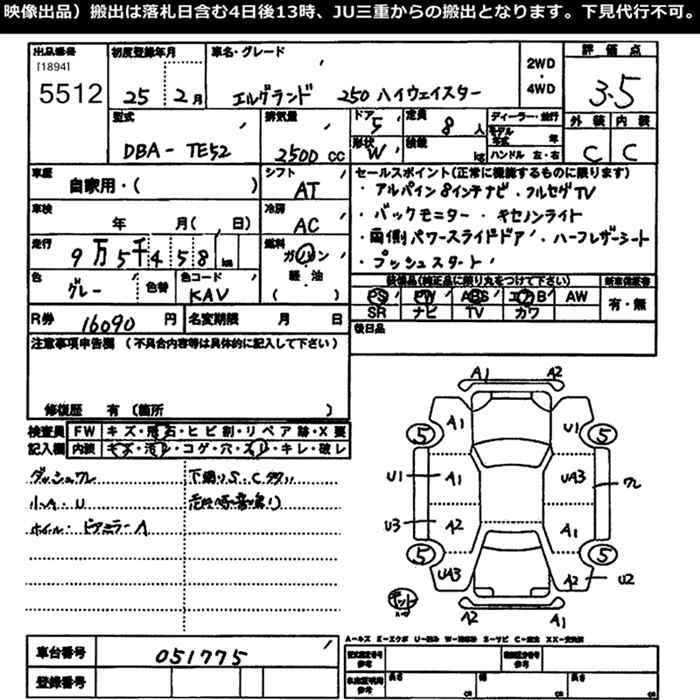 映像出品）搬出は落札日含む4日後13時、JU三重からの搬出となります。下見代行不可。
出品番号 初度登録年月 車名・グレード 2WD・4WD 評価点
[1894]
5512 25 2月 エルグランド 250 ハイウェイスター 3.5
型式 排気量 ドア 5 定員 8人 ディーラー・並行 外装 内装
DBA-TE52 2500 CC 形状 W 車検 kg モデル年式 年 C C
ハンドル 左・右
車歴 自家用・( ) シフト AT セールスポイント(正常に機能するものに限ります)
・アルパイン8インチナビ・フルセグTV
車検 年 月( 、 日) 冷房 AC ・バックモニター・キセノンライト
走行 9万5千458km 燃料 ガソリン ・両側パワースライドドア・ハーフレザーシート
軽・油 ・プッシュスタート
色 グレー 色替 色コード KAV ( ) 装備品(純正品に限り丸をつけて下さい) 新車保証書
PS PW ABS エアB AW 有・無
R券 16090円 名変期限 月 日 SR ナビ TV カワ
後日品
注意事項申告欄(不具合内容等は具体的に記入して下さい)
修復歴 有(箇所 )
検査員記入欄 FW キズ・飛石・ヒビ割・リペア跡・X要
内装 キズ・汚レ・コゲ・穴・スレ・キレ・破レ
ダッシュワレ 下廻りS.C
小A.U 走行時異音鳴り
ホイール・ドアミラーA
A1 A2
A1 U1
5 5
U1 A1 UA3 ワレ
U3 A2 A1
5 5
UA3 A2 U2
A2 A1
車台番号 051775
登録番号
A-キズ E-エクボ U-凹み W-補修跡 S-サビ C-腐食 XX-交換済